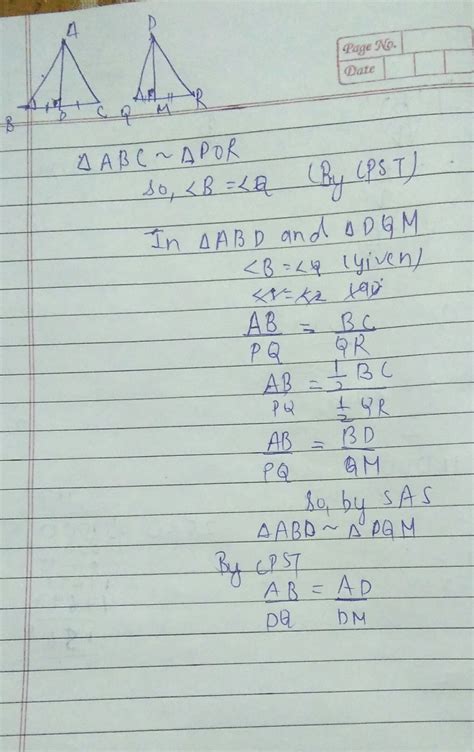 A
D
Page No.
Date
B D C Q M R
△ABC ~ △PQR
So, <B = <Q (By CPST)
In △ABD and △DQM
<B = <Q (given)
AB/PQ = BC/QR
AB/PQ = 1/2 BC / 1/2 QR
AB/PQ = BD/QM
So, by SAS
△ABD ~ △PQM
By CPST
AB/DQ = AD/DM